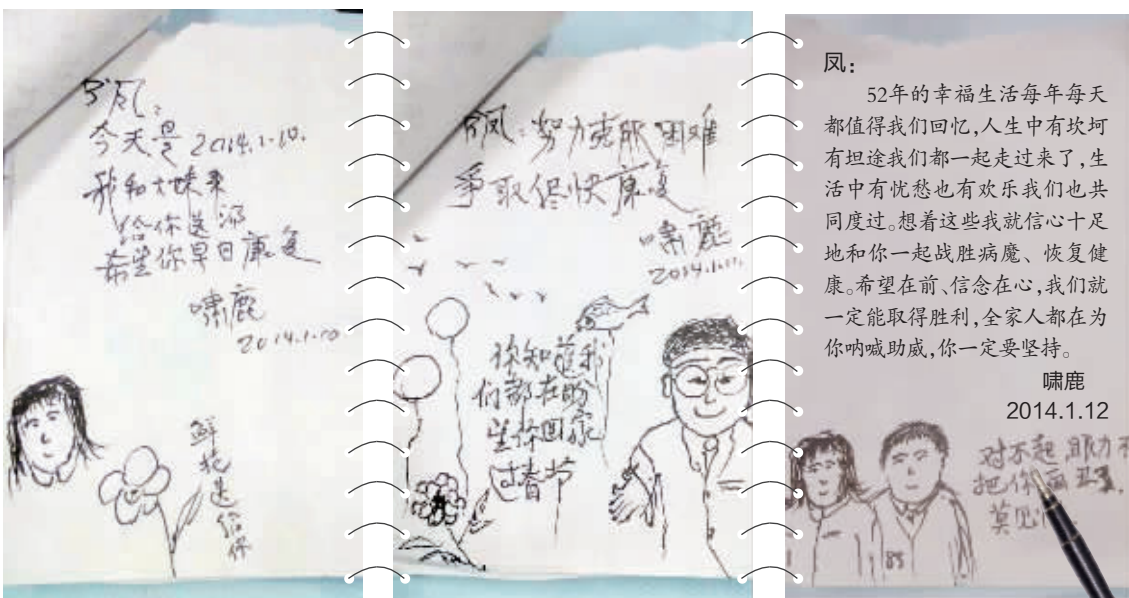 今天是 2014.1.10.
我和大妹来
给你送汤
希望你早日康复
啸鹿
2014.1.10
鲜花送给你
凤:努力克服困难
争取尽快康复
啸鹿
你知道我
们都在盼
望你回家
过春节
凤:
52年的幸福生活每年每天
都值得我们回忆,人生中有坎坷
有坦途我们都一起走过来了,生
活中有忧愁也有欢乐我们也共
同度过。想着这些我就信心十足
地和你一起战胜病魔、恢复健
康。希望在前、信念在心,我们就
一定能取得胜利,全家人都在为
你呐喊助威,你一定要坚持。
啸鹿
2014.1.12
对不起 眼力不
把你画丑了.
莫见
85